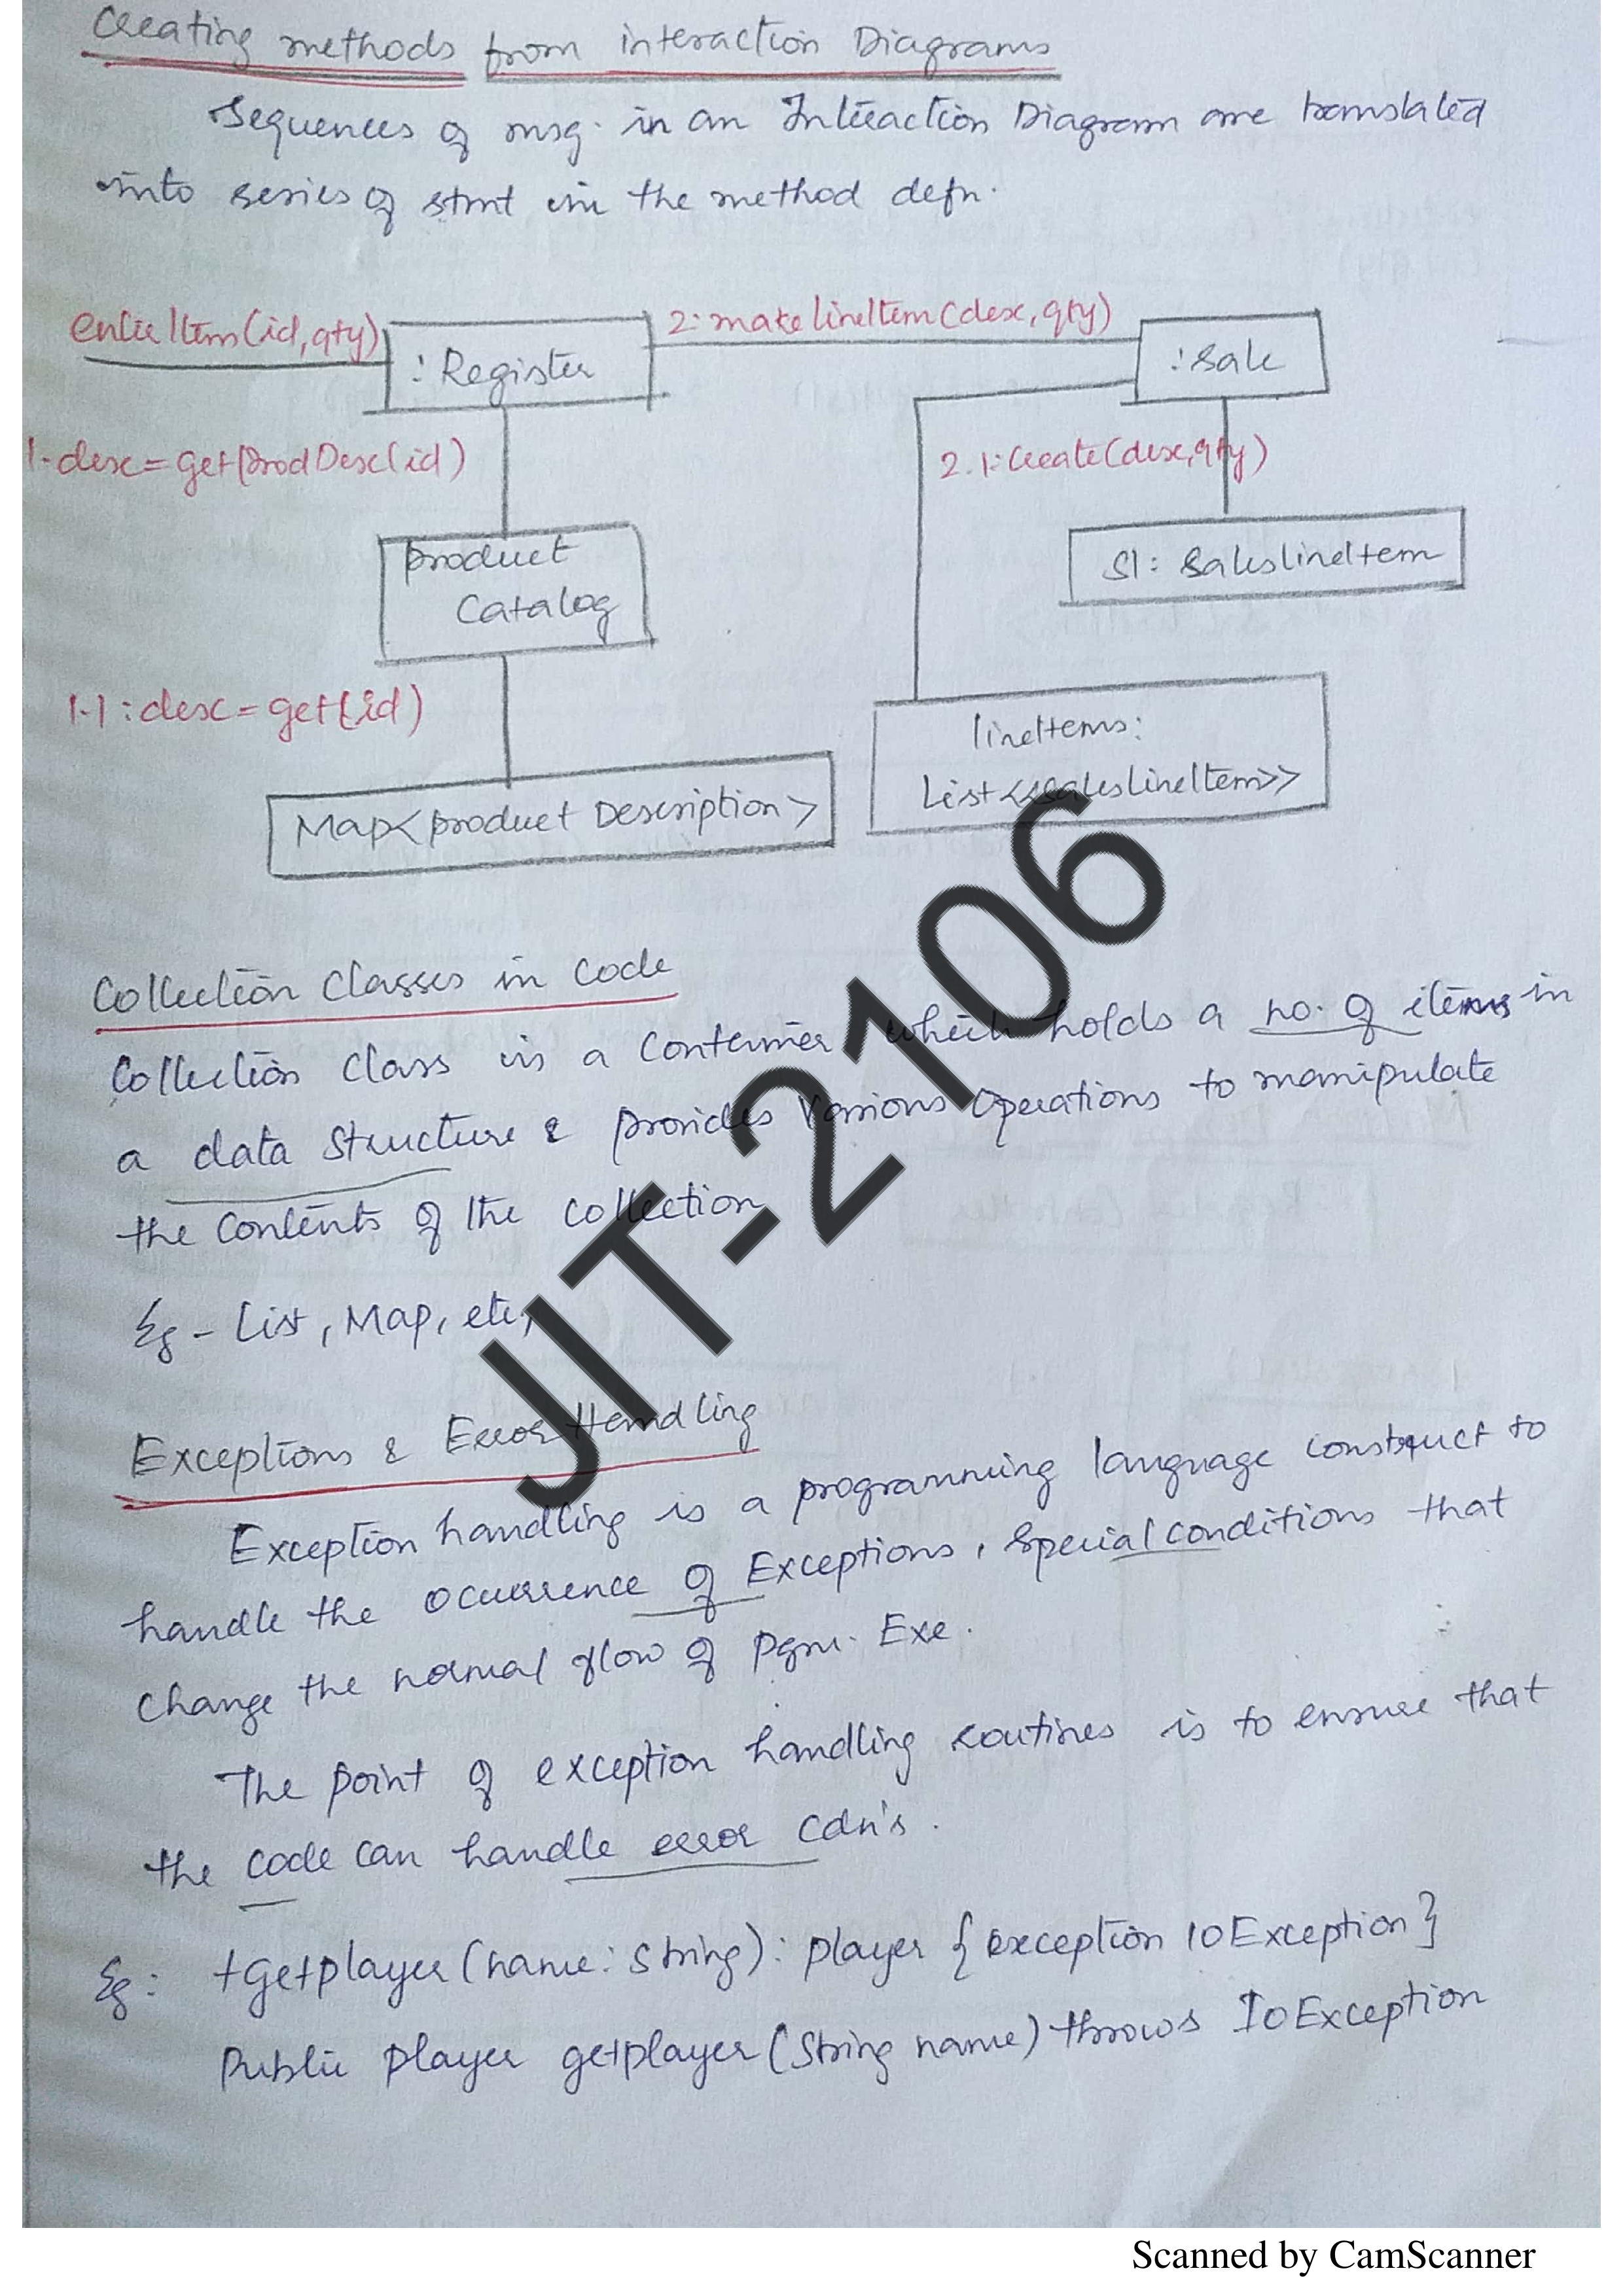 Creating methods from interaction Diagrams
Sequences of msg. in an Interaction Diagram are translated
into series of stmt in the method defn.
enter Item(id,qty)
: Register
2: make lineItem(desc, qty)
: Sale
1. desc = get Prod Desc(id)
2.1: Create(desc,qty)
product
Catalog
Sl: SaleslineItem
1.1 : desc = get(id)
lineItems:
List<<SaleslineItem>>
Map<product Description>
Collection Classes in Code
Collection Class is a Container which holds a no. of items in
a data structure & provides various operations to manipulate
the contents of the collection
Eg - List, Map, etc,
Exceptions & Error Handling
Exception handling is a programming language construct to
handle the ocurrence of Exceptions, special conditions that
change the normal flow of pgm. Exe.
The point of exception handling routines is to ensure that
the code can handle error cdn's.
Eg: +getplayer(name: String): player {exception IOException}
Public player getplayer(String name) throws IOException
JIT-2106
Scanned by CamScanner